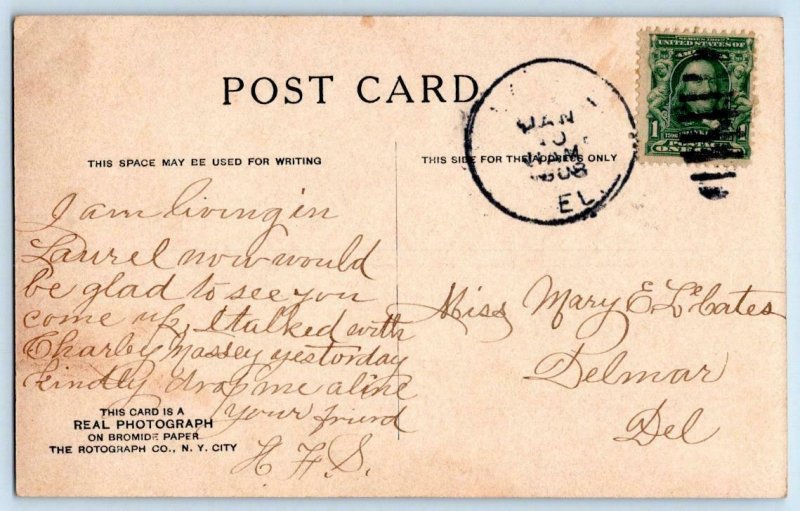 POST CARD
THIS SPACE MAY BE USED FOR WRITING
THIS SIDE FOR THE ADDRESS ONLY
SERIES 1902
UNITED STATES OF
1
1
POSTAGE
JAN
10
1908
EL.
I am living in
Laurel now would
be glad to see you
come up, I talked with
Charley Massey yestorday
kindly drop me a line
your friend
H. F. S.
Miss Mary E. LeCates
Delmar
Del
THIS CARD IS A
REAL PHOTOGRAPH
ON BROMIDE PAPER
THE ROTOGRAPH CO., N. Y. CITY